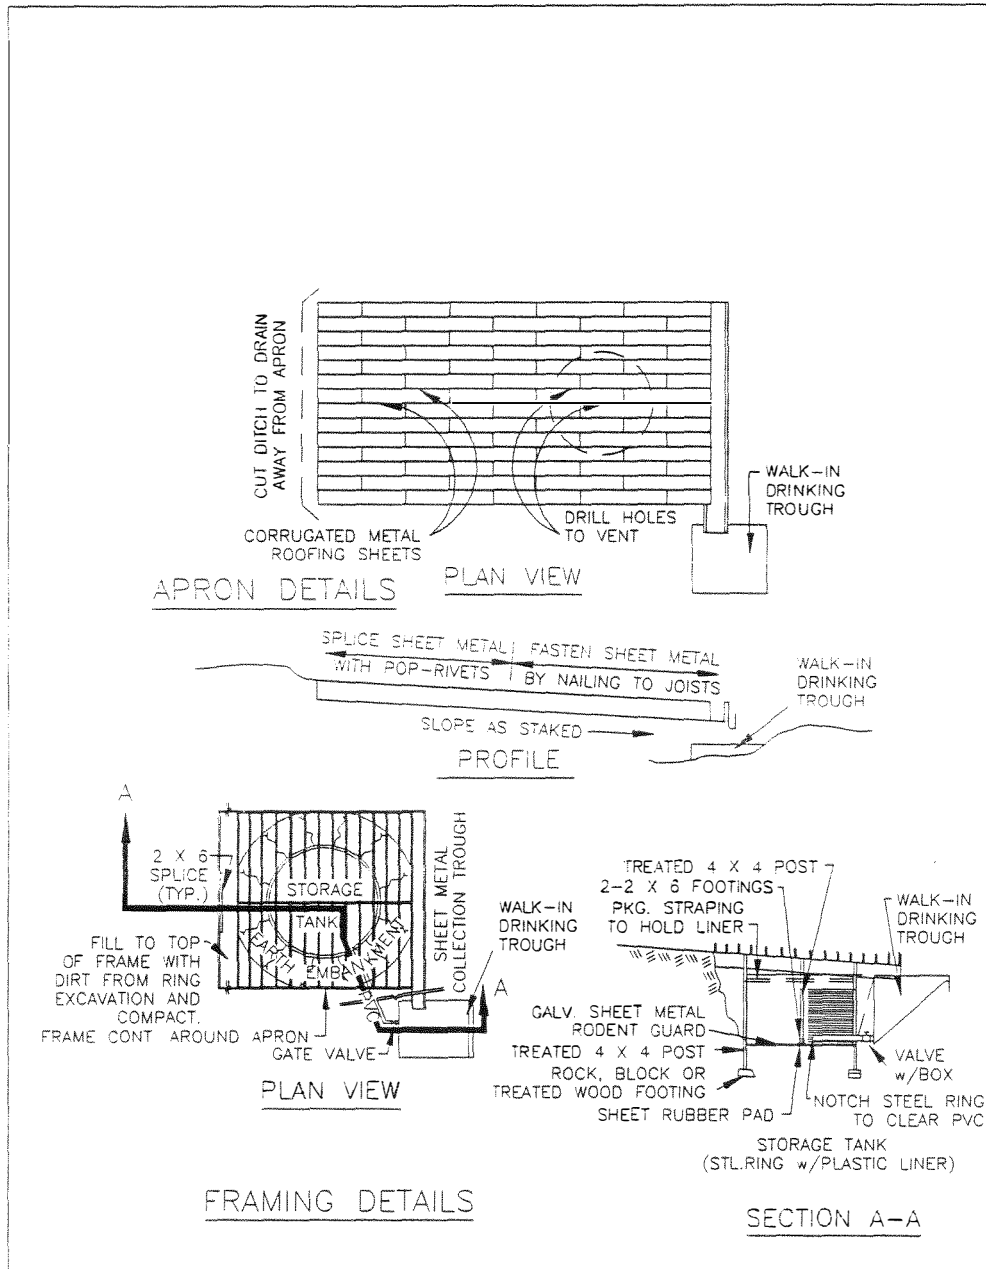 CUT DITCH TO DRAIN
AWAY FROM APRON
WALK-IN
DRINKING
TROUGH
CORRUGATED METAL
ROOFING SHEETS
DRILL HOLES
TO VENT
APRON DETAILS
PLAN VIEW
SPLICE SHEET METAL
WITH POP-RIVETS
FASTEN SHEET METAL
BY NAILING TO JOISTS
WALK-IN
DRINKING
TROUGH
SLOPE AS STAKED
PROFILE
A
2 X 6
SPLICE
(TYP.)
STORAGE
TANK
EARTH EMBANKMENT
PVC
SHEET METAL
COLLECTION TROUGH
WALK-IN
DRINKING
TROUGH
FILL TO TOP
OF FRAME WITH
DIRT FROM RING
EXCAVATION AND
COMPACT.
FRAME CONT AROUND APRON
GATE VALVE
A
PLAN VIEW
FRAMING DETAILS
TREATED 4 X 4 POST
2-2 X 6 FOOTINGS
PKG. STRAPING
TO HOLD LINER
WALK-IN
DRINKING
TROUGH
GALV. SHEET METAL
RODENT GUARD
TREATED 4 X 4 POST
ROCK, BLOCK OR
TREATED WOOD FOOTING
SHEET RUBBER PAD
VALVE
w/BOX
NOTCH STEEL RING
TO CLEAR PVC
STORAGE TANK
(STL.RING w/PLASTIC LINER)
SECTION A-A